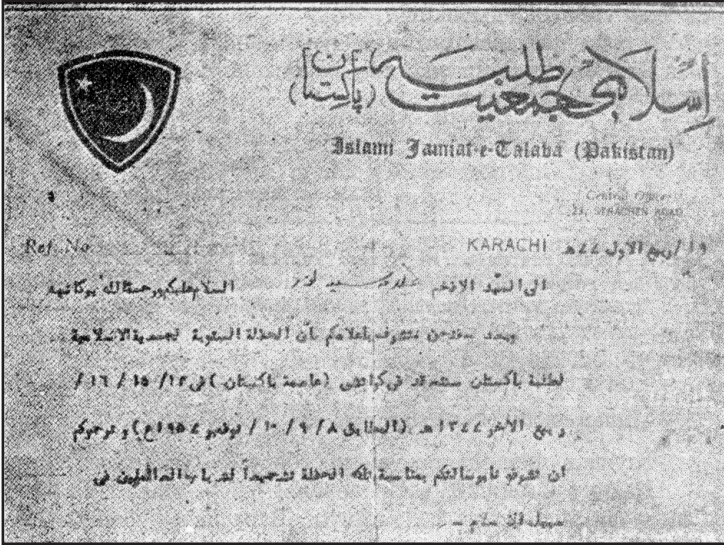 اسلامی جمعیت طلبہ (پاکستان)
Islami Jamiat-e-Talaba (Pakistan)
Central Office:
23, STRACHEN ROAD
Ref. No
KARACHI
ربیع الاول ٤٤ھ
الی السید الافخم السلام علیکم ورحمة الله وبرکاته
وبعد فنحن نتشرف باعلامکم بان الحفلة السنوية لجمعية الاسلامية
لطلبة باکستان ستنعقد فی کراتشی (عاصمة باکستان) فی ١٤/ ١٥ / ١٦ /
ربیع الاخر ١٣٤٤ھ (المطابق ٨ / ٩ / ١٠ / نوفمبر ١٩٥٤ع) و نرجوکم
ان تشرفو نا برسالتکم بمناسبة تلك الحفلة تشجیعاً لشباب العاملین فی
سبیل الاسلام -